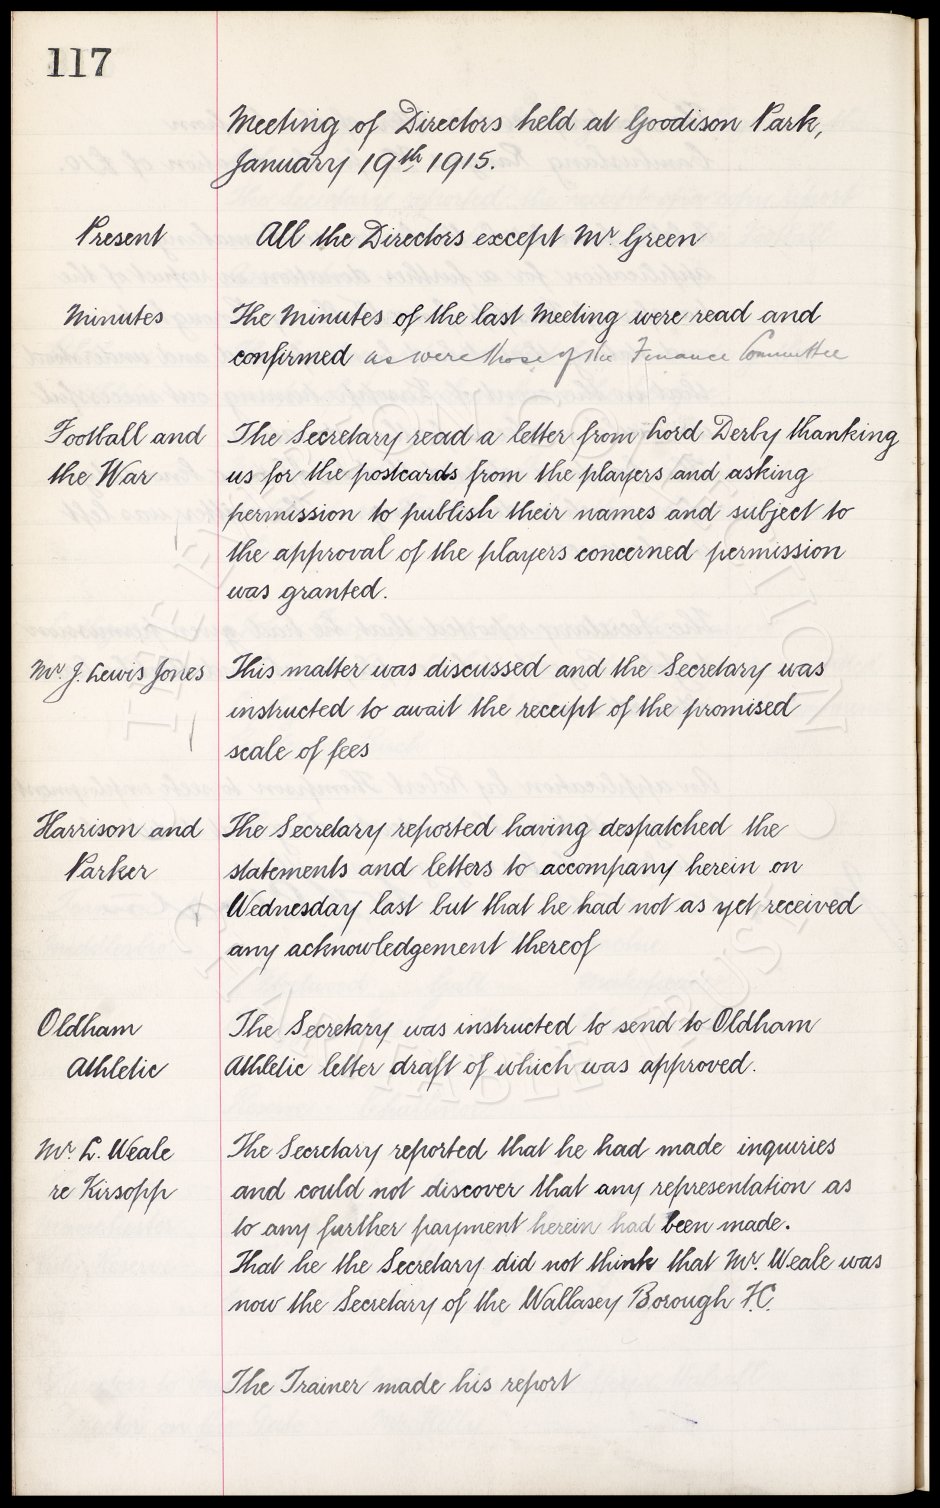 117
Meeting of Directors held at Goodison Park,
January 19th 1915.
Present
All the Directors except Mr Green
Minutes
The Minutes of the last Meeting were read and
confirmed as were those of the Finance Committee
Football and
the War
The Secretary read a letter from Lord Derby thanking
us for the postcards from the players and asking
permission to publish their names and subject to
the approval of the players concerned permission
was granted.
Mr. J. Lewis Jones
This matter was discussed and the Secretary was
instructed to await the receipt of the promised
scale of fees
Harrison and
Parker
The Secretary reported having despatched the
statements and letters to accompany herein on
Wednesday last but that he had not as yet received
any acknowledgement thereof
Oldham
Athletic
The Secretary was instructed to send to Oldham
Athletic letter draft of which was approved.
Mr L. Weale
re Kirsopp
The Secretary reported that he had made inquiries
and could not discover that any representation as
to any further payment herein had been made.
That he the Secretary did not think that Mr. Weale was
now the Secretary of the Wallasey Borough F.C.
The Trainer made his report